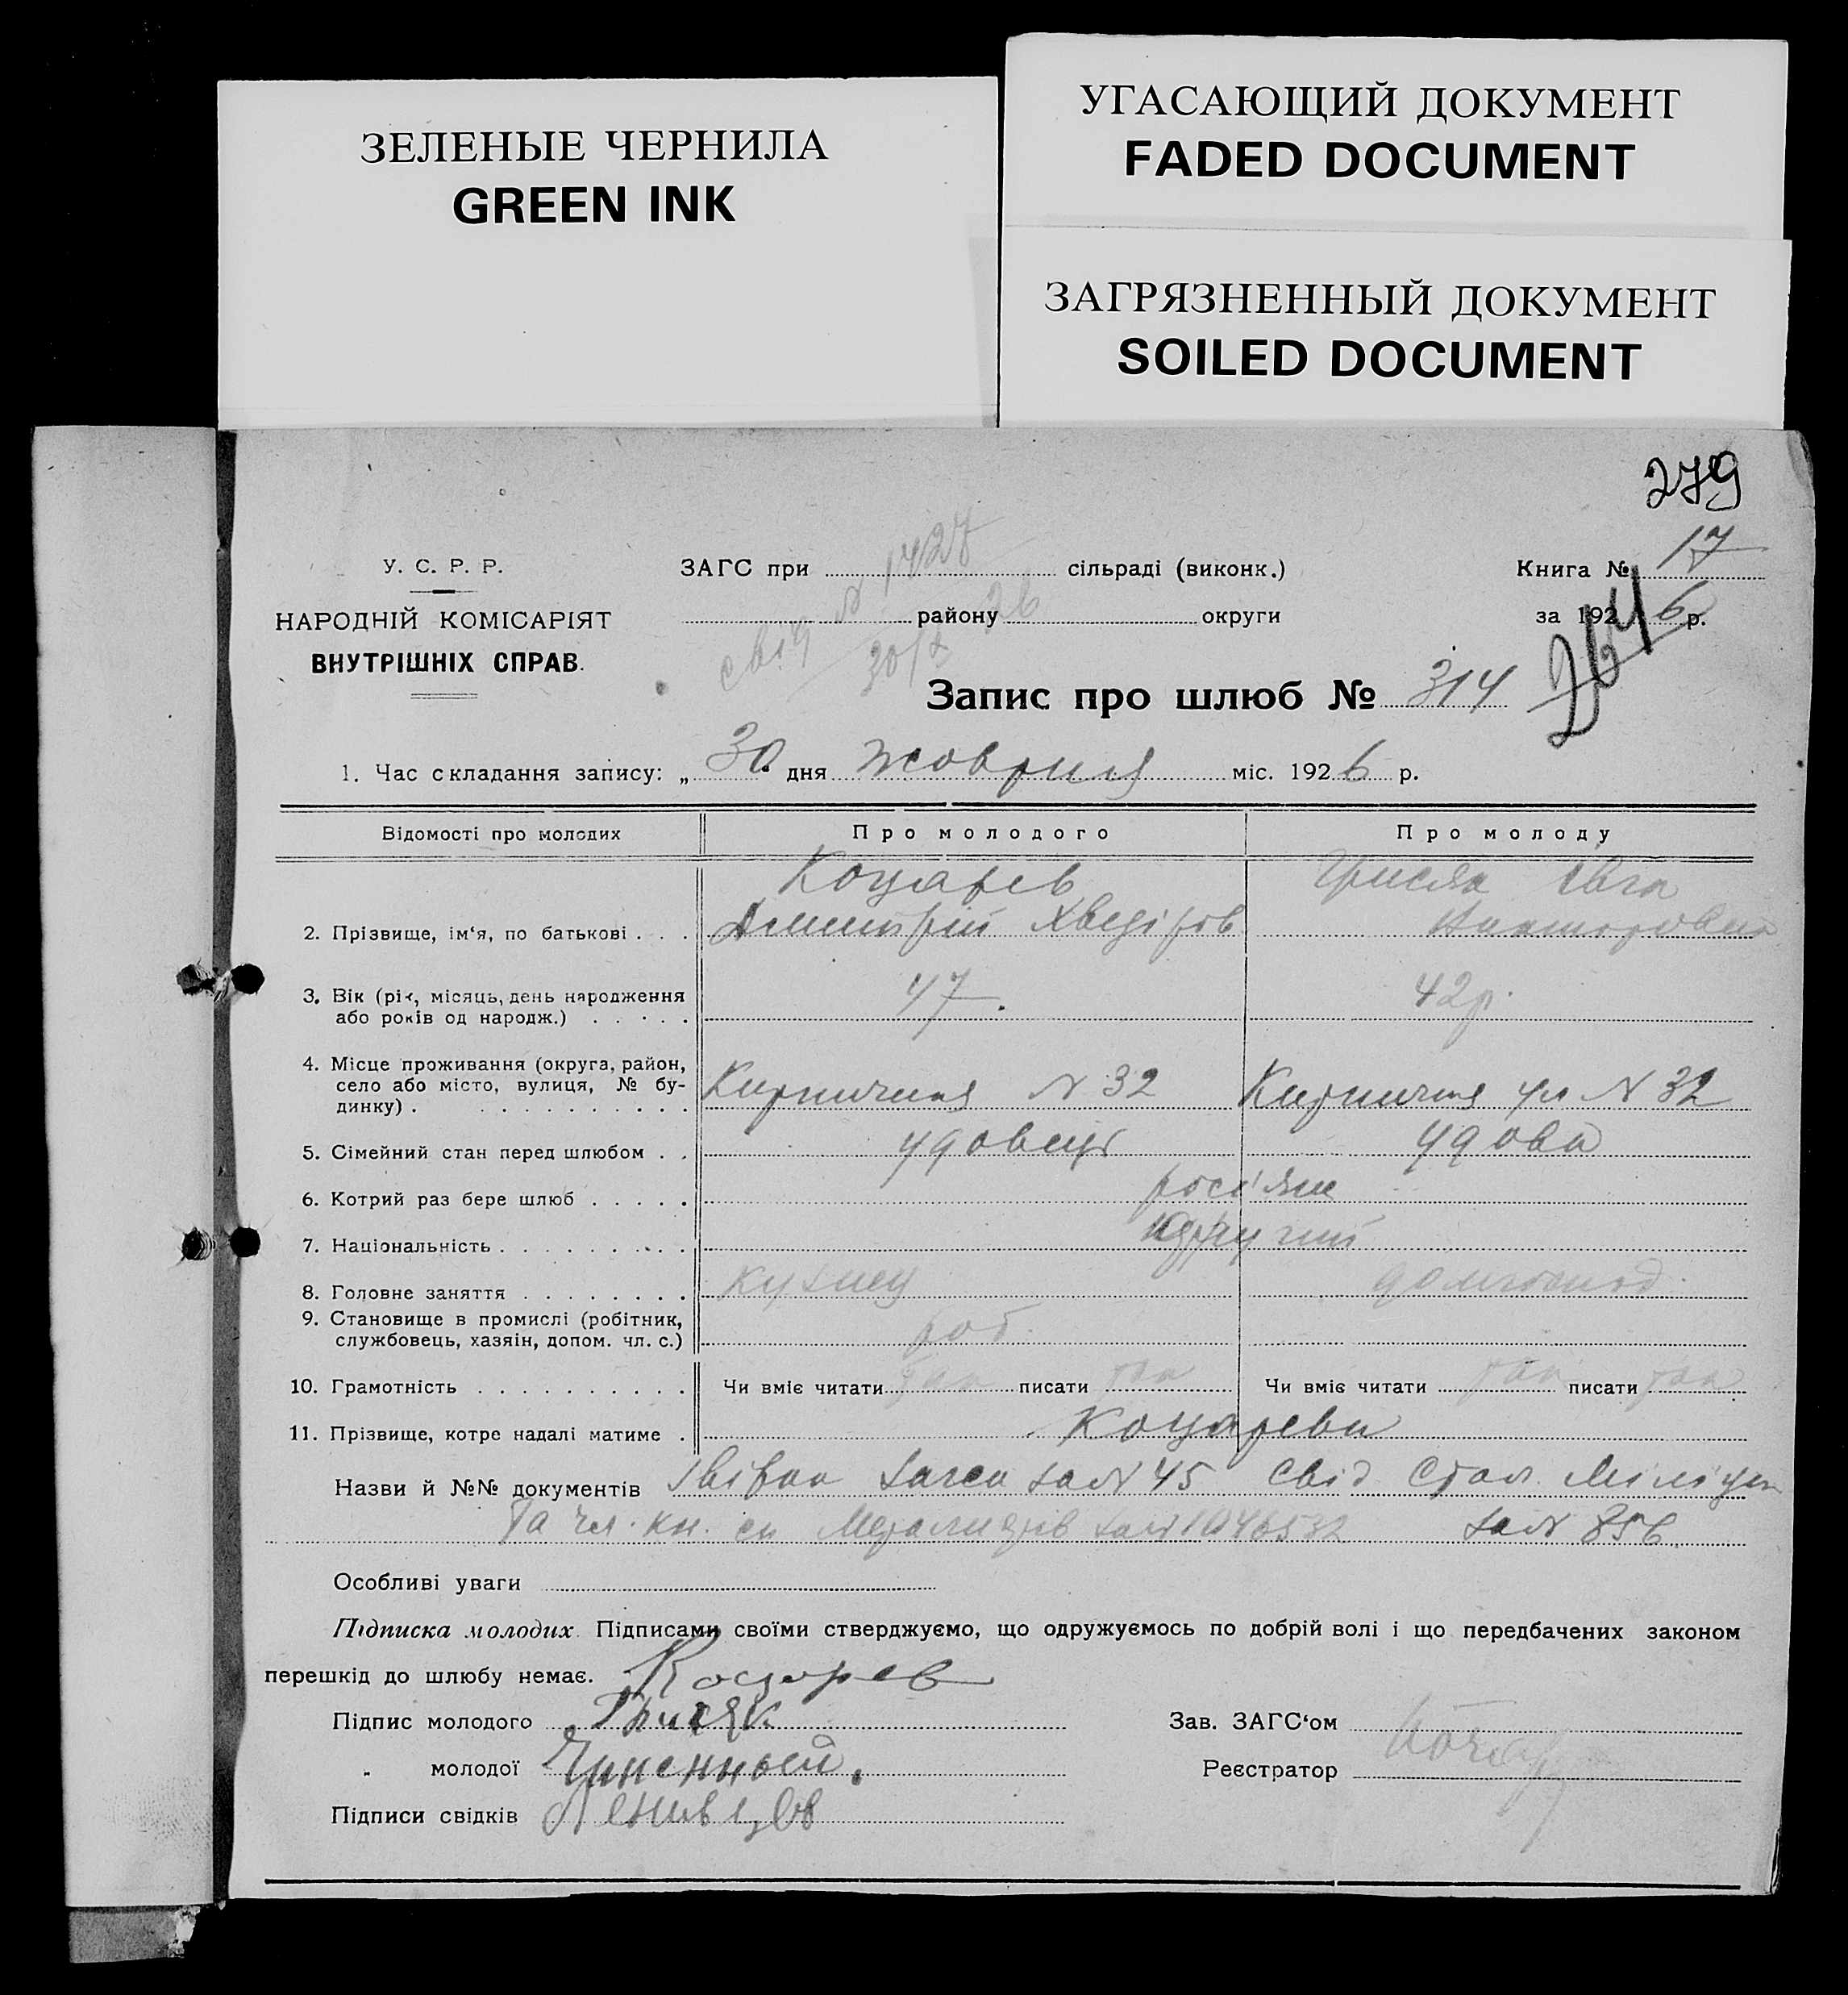 ЗЕЛЕНЫЕ ЧЕРНИЛА
GREEN INK
УГАСАЮЩИЙ ДОКУМЕНТ
FADED DOCUMENT
ЗАГРЯЗНЕННЫЙ ДОКУМЕНТ
SOILED DOCUMENT
279
У. С. Р. Р.
НАРОДНІЙ КОМІСАРІЯТ
ВНУТРІШНІХ СПРАВ.
ЗАГС при сільраді (виконк.)
району округи
свід N 1427
30/X 26
Книга № 17
за 1926 р.
264
Запис про шлюб № 314
1. Час складання запису: „ 30 " дня жовтня міс. 1926 р.
Відомості про молодих Про молодого Про молоду
2. Прізвище, ім'я, по батькові . . . Коцарев Дмитрій Хведіров
3. Вік (рік, місяць, день народження або років од народж.) . . . . . 47. 42 р.
4. Місце проживання (округа, район, село або місто, вулиця, № будинку) . Кирпичная N 32 Кирпичная ул N 32
5. Сімейний стан перед шлюбом . . удовець удова
6. Котрий раз бере шлюб . . . . . росіяне
7. Національність . . . . . . . . . другий
8. Головне заняття . . . . . . . . кузнец домгоспод.
9. Становище в промислі (робітник, службовець, хазяін, допом. чл. с.) роб.
10. Грамотність . . . . . . . . . . Чи вміє читати так писати так Чи вміє читати так писати так
11. Прізвище, котре надалі матиме . Коцареви
Назви й №№ документів Загса за N 45 Свід Стол. Міліции
Та чл. кн. сп Металистів за N 1046532 за N 856
Особливі уваги
Підписка молодих. Підписами своїми стверджуємо, що одружуємось по добрій волі і що передбачених законом
перешкід до шлюбу немає. Коцарев
Підпис молодого Грисяк
" молодої
Підписи свідків Ленивцов
Зав. ЗАГС'ом
Реєстратор